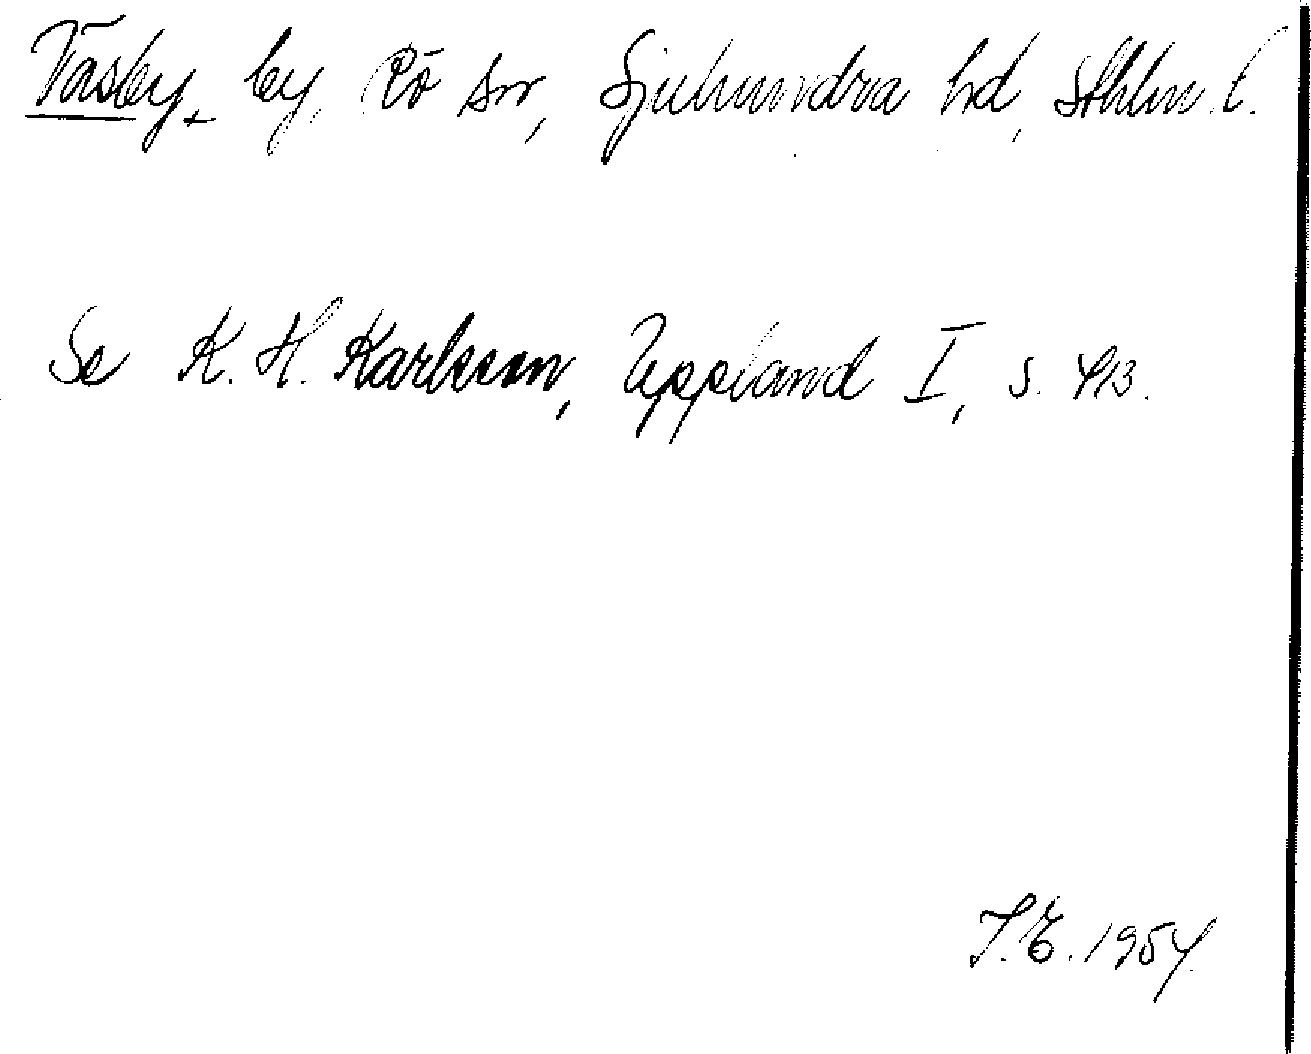 Väsby, by, Rö sn, Sjuhundra hd, Sthlms l.
Se K. H. Karlsson, Uppland I, s. 413.
T. E. 1954